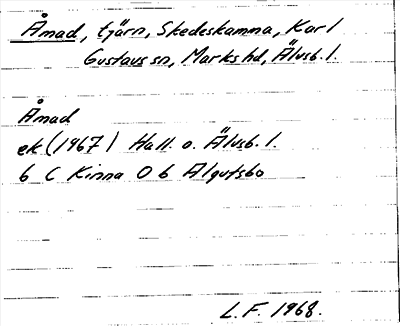 Åmad, tjärn, Skedeskamma, Karl
Gustavs sn, Marks hd, Älvsb. l.
Åmad
ek (1967) Hall. o. Älvsb. l.
6 C Kinna 0 b Algutsbo
L.F. 1968.